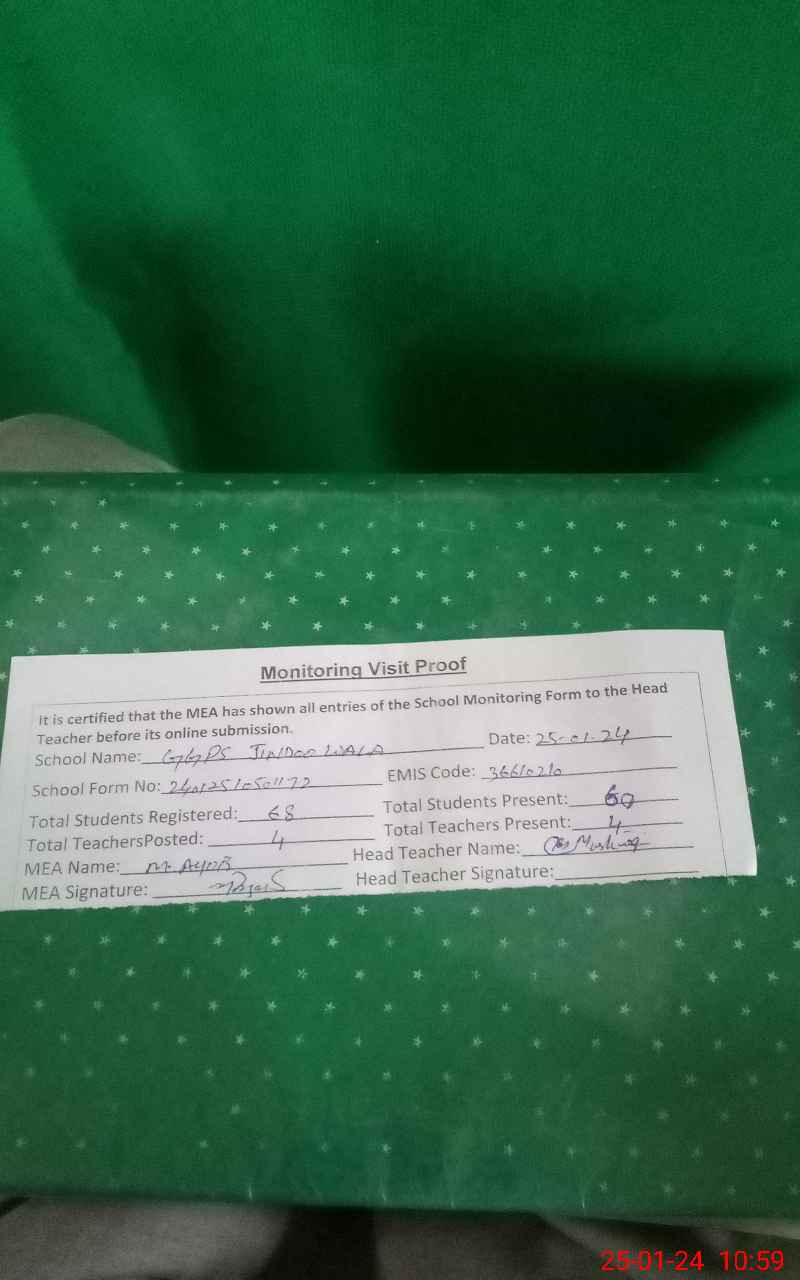 Monitoring Visit Proof
It is certified that the MEA has shown all entries of the School Monitoring Form to the Head
Teacher before its online submission.
School Name: GGPS JINDOO WALA Date: 25-01-24
School Form No: EMIS Code: 36610210
Total Students Registered: 68 Total Students Present: 60
Total TeachersPosted: 4 Total Teachers Present: 4
MEA Name: M. AYUB Head Teacher Name:
MEA Signature: Head Teacher Signature:
25-01-24 10:59